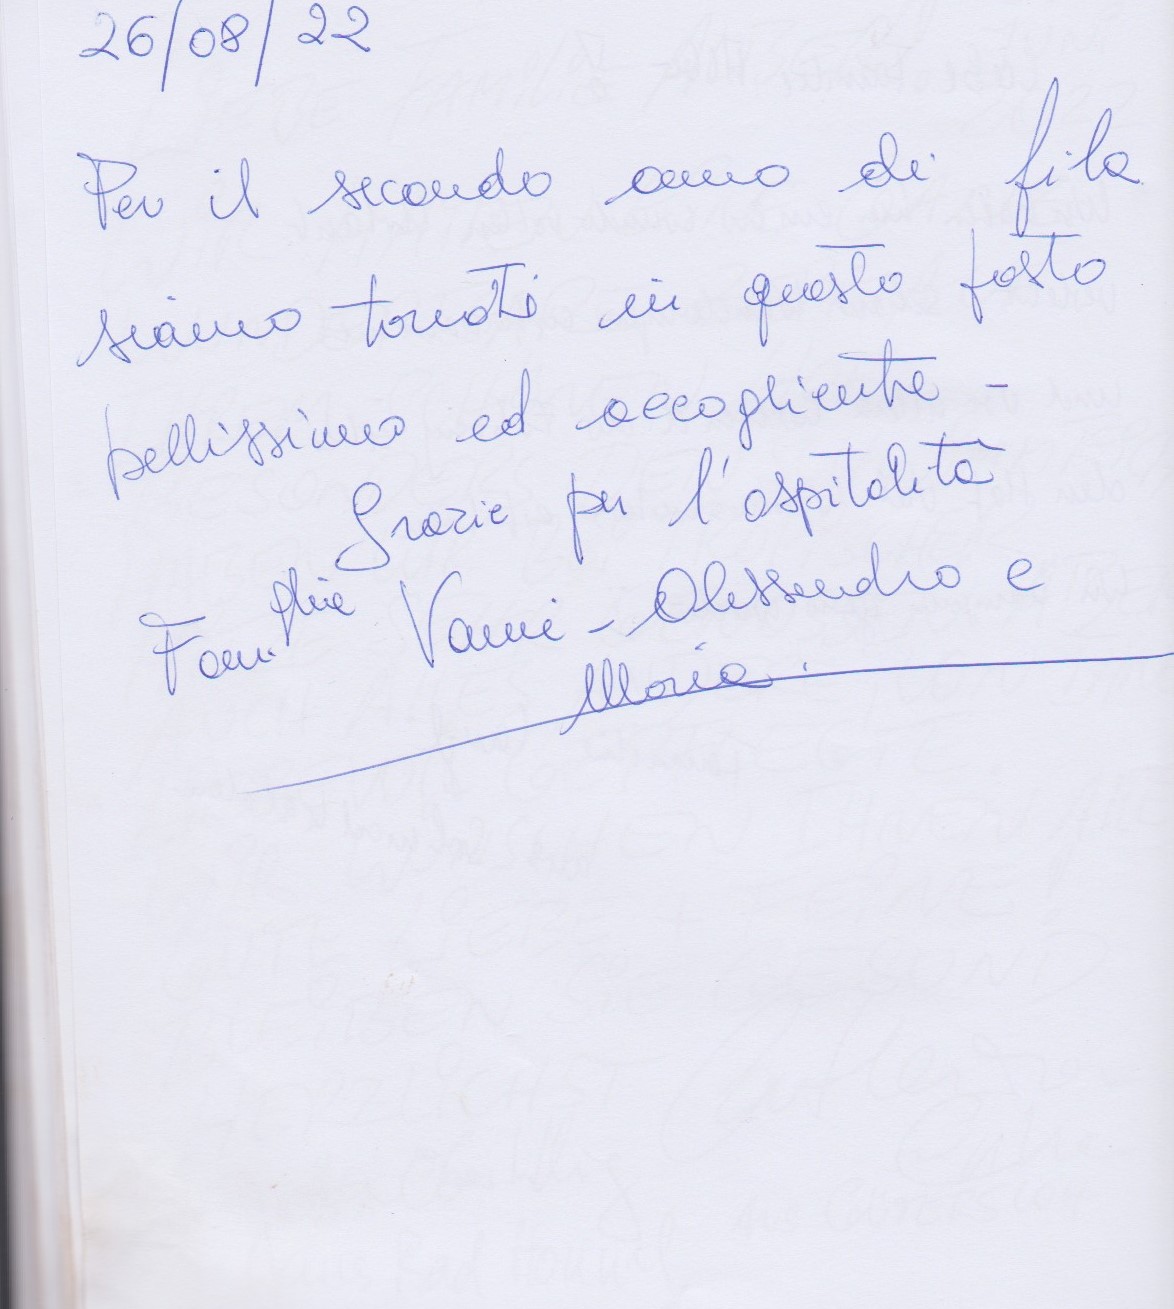 26/08/22
Per il secondo anno di fila
siamo tornati in questo posto
bellissimo ed accogliente -
Grazie per l'ospitalità
Fam.glie Vanni - Alessandro e
Maria.